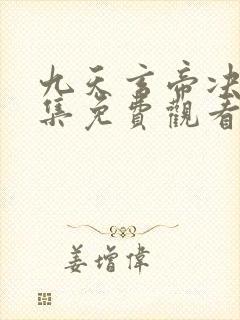 九天言帝决
集免費觀看
姜增偉